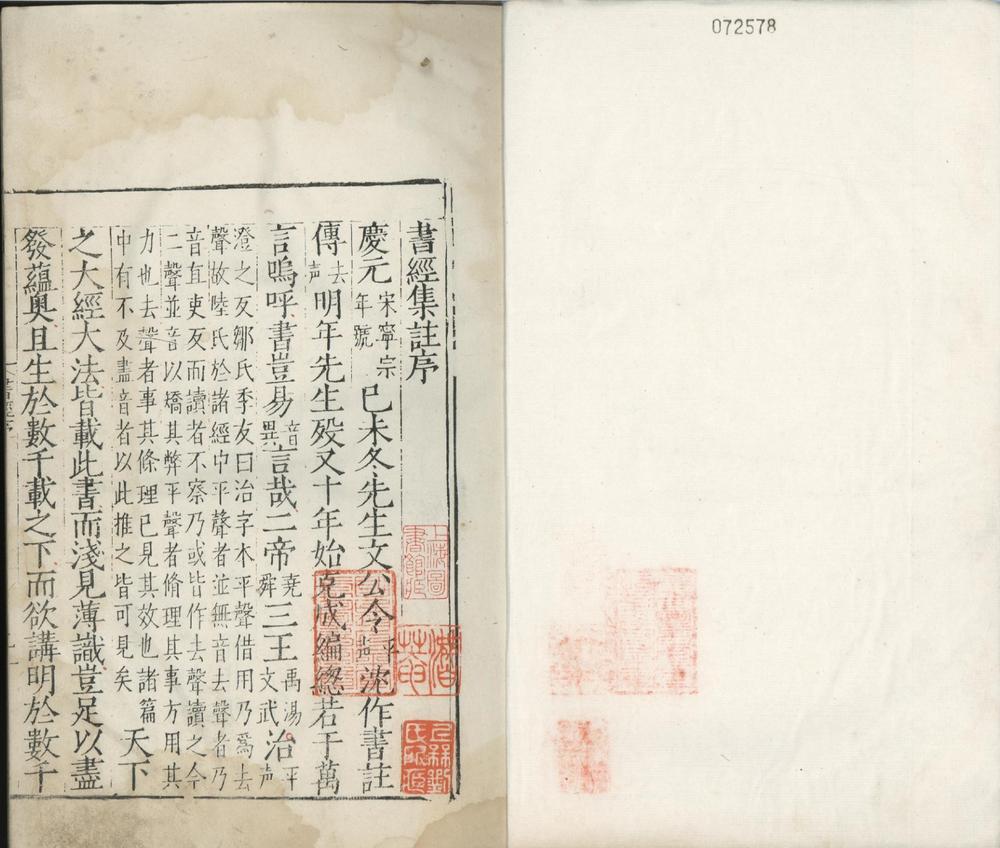 072578
書經集註序
慶元宋寧宗年號已未冬先生文公令平声沈作書註
傳去声明年先生殁又十年始克成編緫若干萬
言嗚呼書豈易音異言哉二帝堯舜三王禹湯文武治平声
澄之反鄒氏季友曰治字本平聲借用乃爲去
聲故陸氏於諸經中平聲者並無音去聲者乃
音直吏反而讀者不察乃或皆作去聲讀之今
二聲並音以矯其弊平聲者脩理其事方用其
力也去聲者事其條理已見其效也諸篇
中有不及盡音者以此推之皆可見矣天下
之大經大法皆載此書而淺見薄識豈足以盡
發蘊奥且生於數千載之下而欲講明於數千
上海圖書館藏